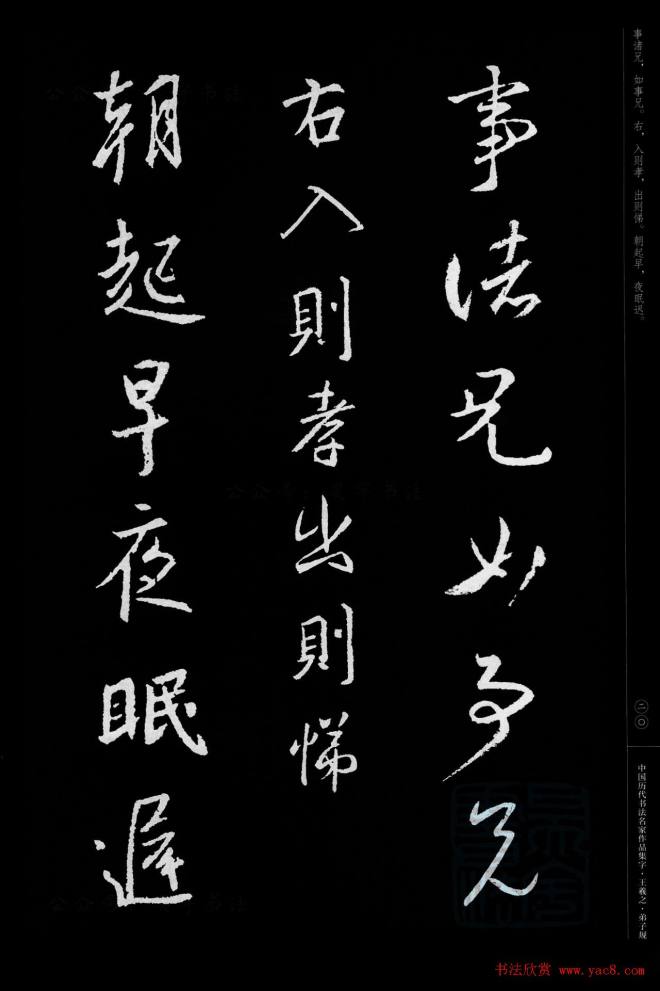 事諸兄如事兄
右入則孝出則悌
朝起早夜眠遲
事诸兄，如事兄。右，入则孝，出则悌。朝起早，夜眠迟。
二〇
中国历代书法名家作品集字·王羲之·弟子规
书法欣赏 www.yac8.com